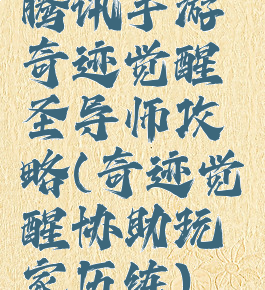 腾讯手游
奇迹觉醒
圣导师攻
略(奇迹觉
醒协助玩
家历练)